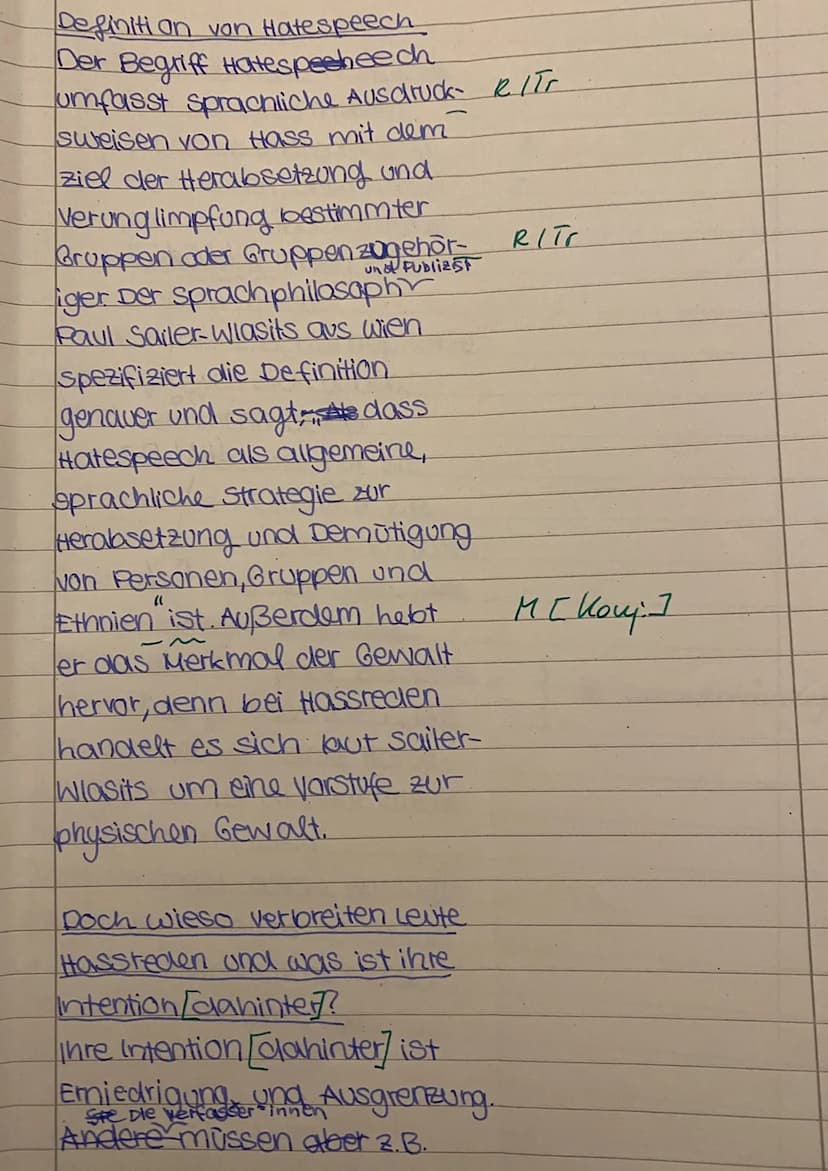 Definition von Hatespeech
Der Begriff Hatespeeheech
umfasst sprachliche Ausdruck- R/Tr
sweisen von Hass mit dem
Ziel der Herabsetzung und
Verunglimpfung bestimmter
Gruppen oder Gruppenzugehör- R/Tr
und Publizist
iger. Der Sprachphilosoph
Paul Sailer-Wlasits aus Wien
spezifiziert die Definition
genauer und sagt, dass
Hatespeech als allgemeine,
sprachliche Strategie zur
Herabsetzung und Demütigung
von Personen, Gruppen und
Ethnien" ist. Außerdem hebt M [Konj.]
er das Merkmal der Gewalt
hervor, denn bei Hassreden
handelt es sich laut Sailer-
Wlasits um eine Vorstufe zur
physischen Gewalt.
Doch wieso verbreiten Leute
Hassreden und was ist ihre
Intention [dahinter]?
Ihre Intention [dahinter] ist
Erniedrigung und Ausgrenzung.
Sie Die Verfasser*innen
Andere müssen aber z.B.